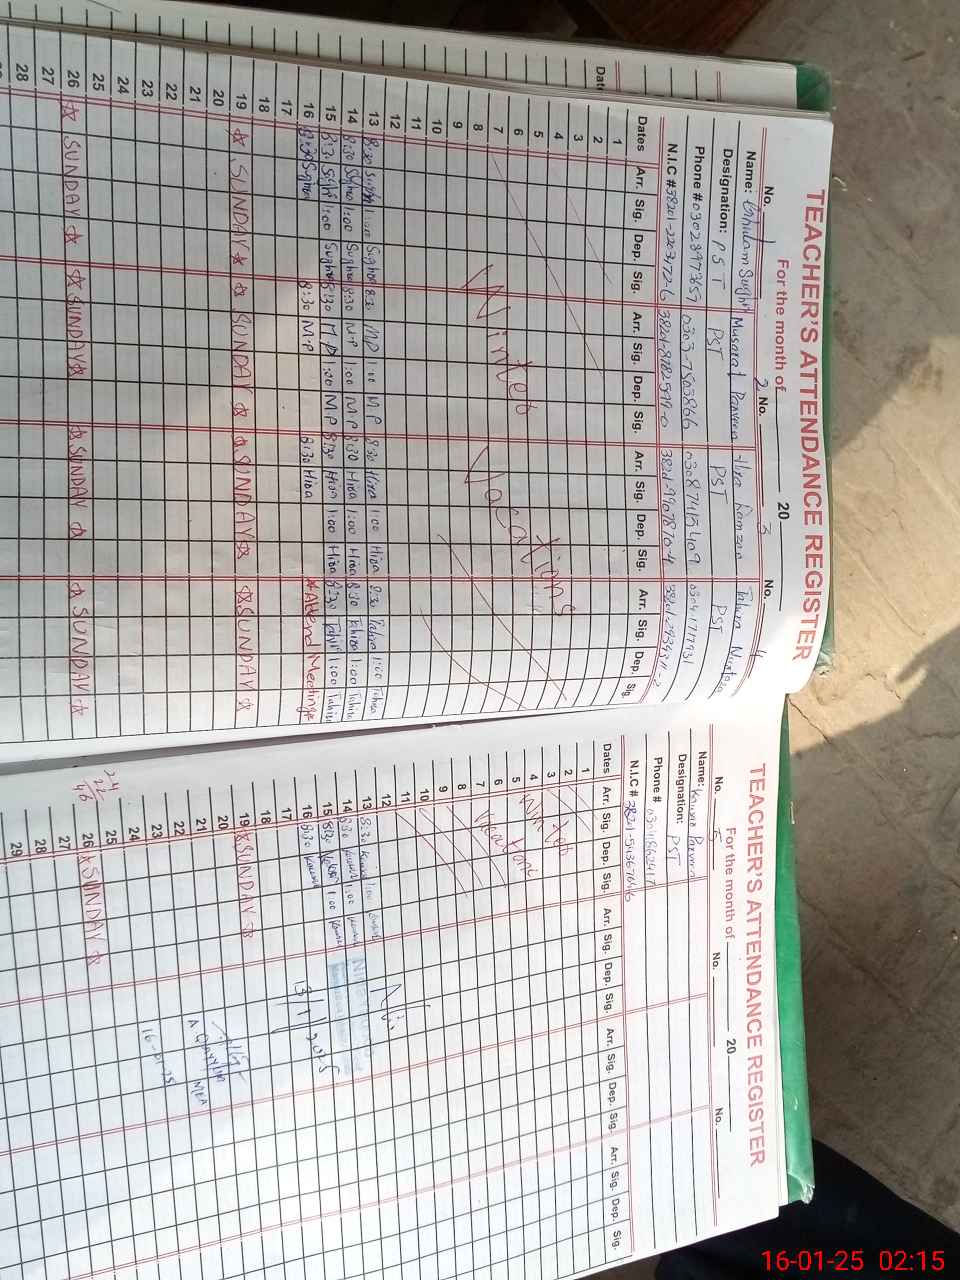 TEACHER'S ATTENDANCE REGISTER
For the month of 20
No. 1 No. 2 No. 3 No. 4
Name: Ghulam Sughra Musarat Parveen Hira Ramzan Tahira
Designation: PST PST PST PST
Phone # 03028973657 0303-7803866 03087415409 03041717931
N.I.C # 38201-2203172-6 38201-8782599-0
Dates Arr. Sig. Dep. Sig. Arr. Sig. Dep. Sig. Arr. Sig. Dep. Sig. Arr. Sig. Dep. Sig.
1
2
3
4
5
6
7
8
9
10
11
12
Winter Vacations
13 8:30 1:00 Sughra 8:30 M.P 1:00 M.P 8:30 Hira 1:00 Hira 8:30 Tahira 1:00 Tahira
14 8:30 Sughra 1:00 Sughra 8:30 M.P 1:00 M.P 8:30 Hira 1:00 Hira 8:30 Tahira 1:00 Tahira
15 8:30 1:00 Sughra 8:30 M.P 1:00 M.P 8:30 Hira 1:00 Hira 8:30 1:00 Tahira
16 8:30 Sughra 8:30 M.P 8:30 Hira *Attend Meeting*
17
18
19 ☆ SUNDAY ☆ ☆ SUNDAY ☆ ☆ SUNDAY ☆ ☆ SUNDAY ☆
20
21
22
23
24
25
26 ☆ SUNDAY ☆ ☆ SUNDAY ☆ ☆ SUNDAY ☆ ☆ SUNDAY ☆
27
28
TEACHER'S ATTENDANCE REGISTER
For the month of 20
No. 5 No. No.
Name: Parveen
Designation: PST
Phone #
N.I.C #
Dates Arr. Sig. Dep. Sig. Arr. Sig. Dep. Sig. Arr. Sig. Dep. Sig. Arr. Sig. Dep. Sig.
1
2
3
4
5
6
7
8
9
10
11
12
Winter
Vacations
13 8:30 1:00
14 8:30 1:00
15 8:30 1:00
16 8:30
17
18
19 ☆ SUNDAY ☆
20
21
22
23
24
25
26 ☆ SUNDAY ☆
27
28
29
24
22
46
MEA
16-01-25
16-01-25 02:15